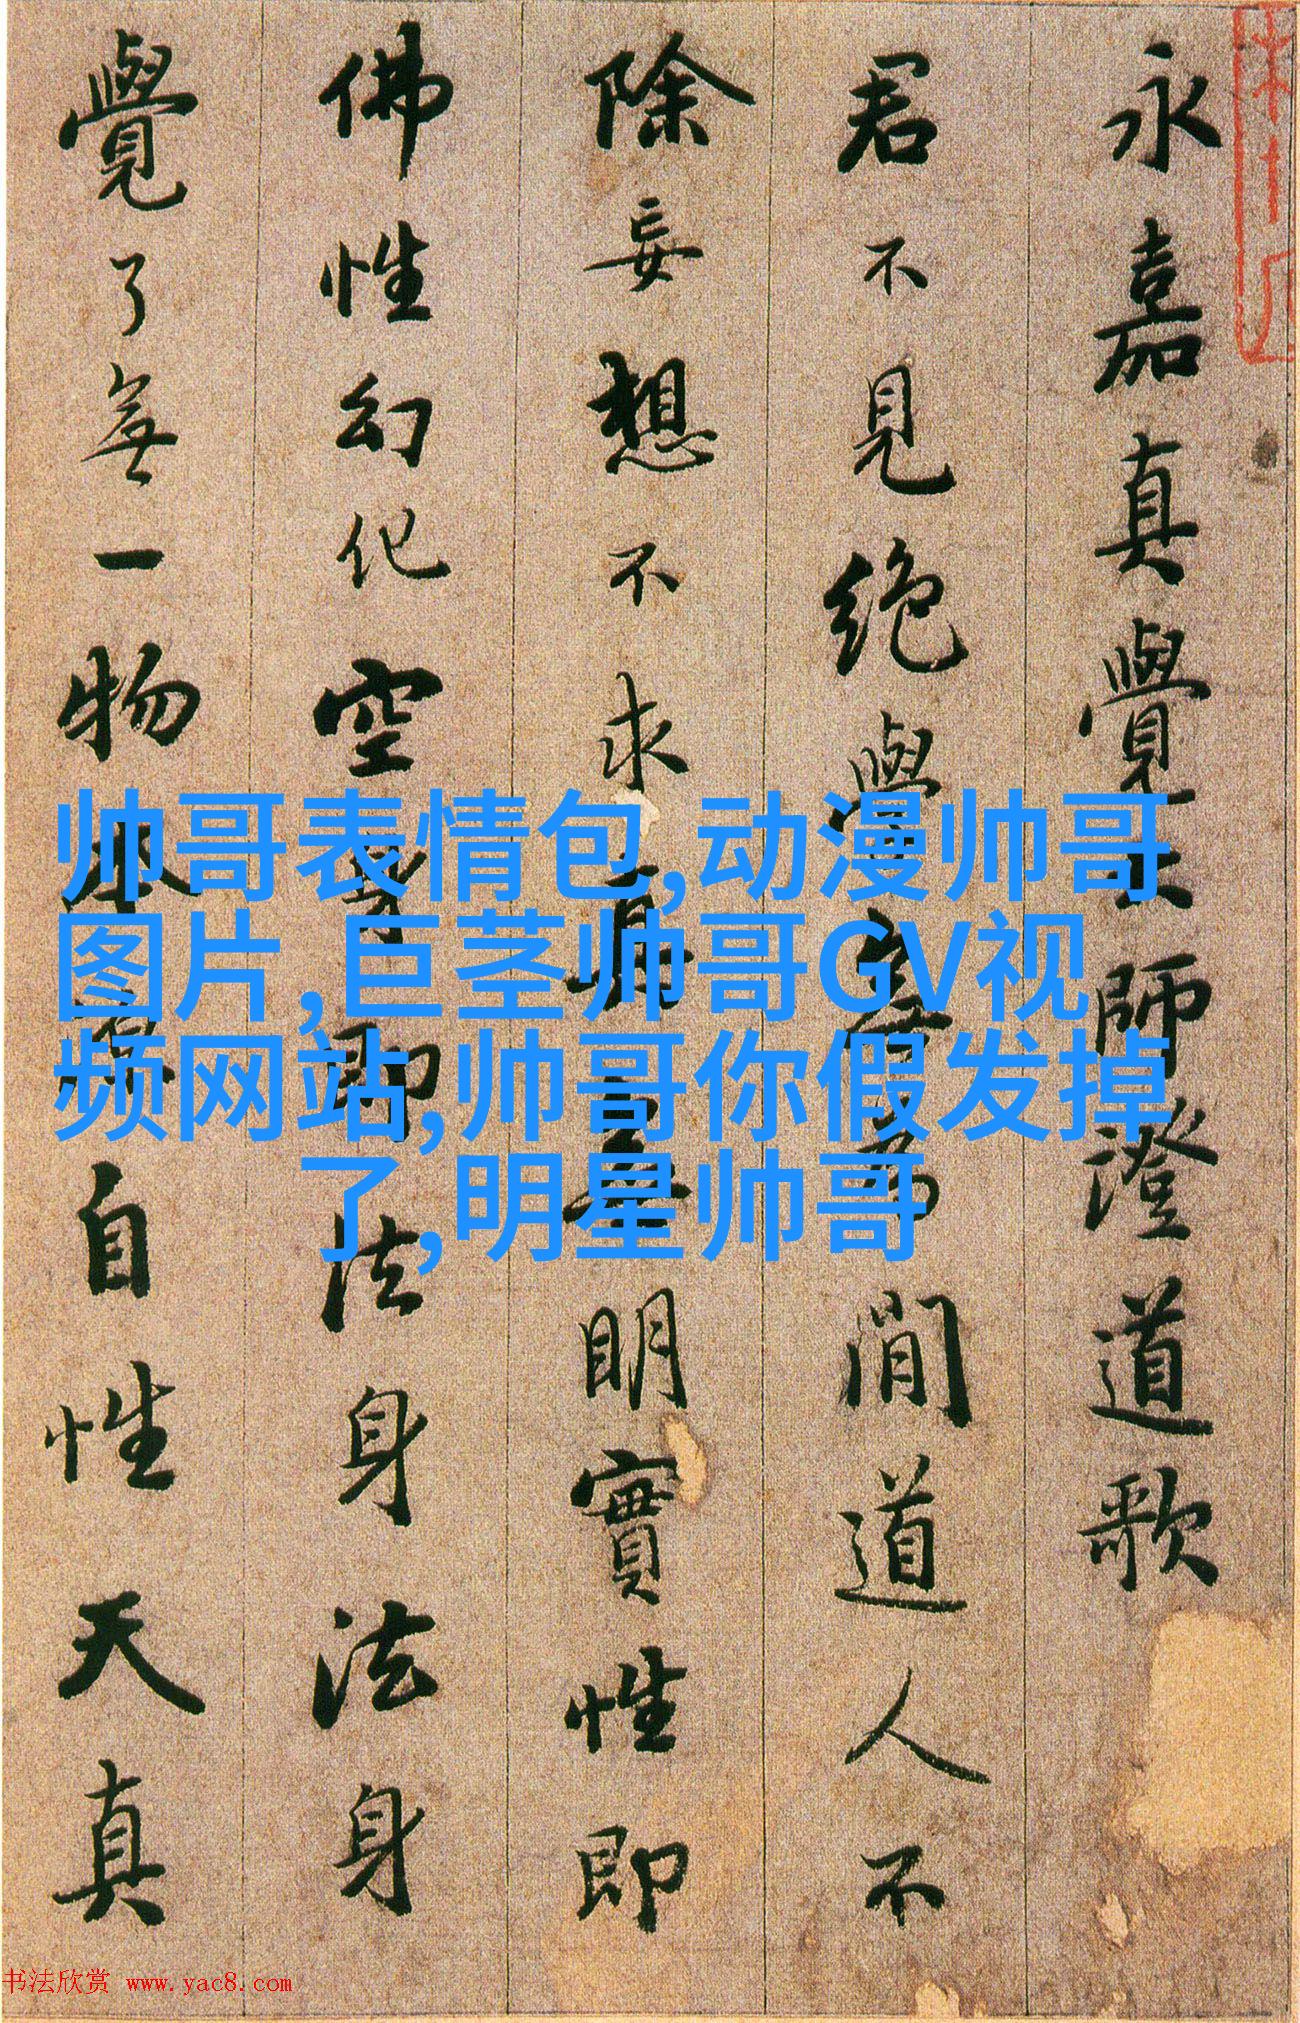 永嘉真覺師澄道歌
君不見絶學無為閒道人不
除妄想不求真無明實性即
佛性幻化空身即法身法身
覺了無一物本源自性天真
帅哥表情包,动漫帅哥
图片,巨茎帅哥GV视
频网站,帅哥你假发掉
了,明星帅哥
书法欣赏 www.yac8.com